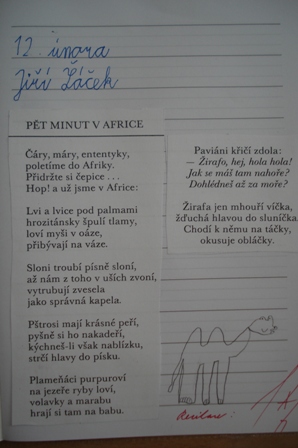 12. února
Jiří Žáček
PĚT MINUT V AFRICE
Čáry, máry, ententyky,
poletíme do Afriky.
Přidržte si čepice . . .
Hop! a už jsme v Africe:
Lvi a lvice pod palmami
hrozitánsky špulí tlamy,
loví myši v oáze,
přibývají na váze.
Sloni troubí písně sloní,
až nám z toho v uších zvoní,
vytrubují zvesela
jako správná kapela.
Pštrosi mají krásné peří,
pyšně si ho nakadeří,
kýchneš-li však nablízku,
strčí hlavy do písku.
Plameňáci purpuroví
na jezeře ryby loví,
volavky a marabu
hrají si tam na babu.
Paviáni křičí zdola:
— Žirafo, hej, hola hola!
Jak se máš tam nahoře?
Dohlédneš až za moře?
Žirafa jen mhouří víčka,
žďuchá hlavou do sluníčka.
Chodí k němu na táčky,
okusuje obláčky.